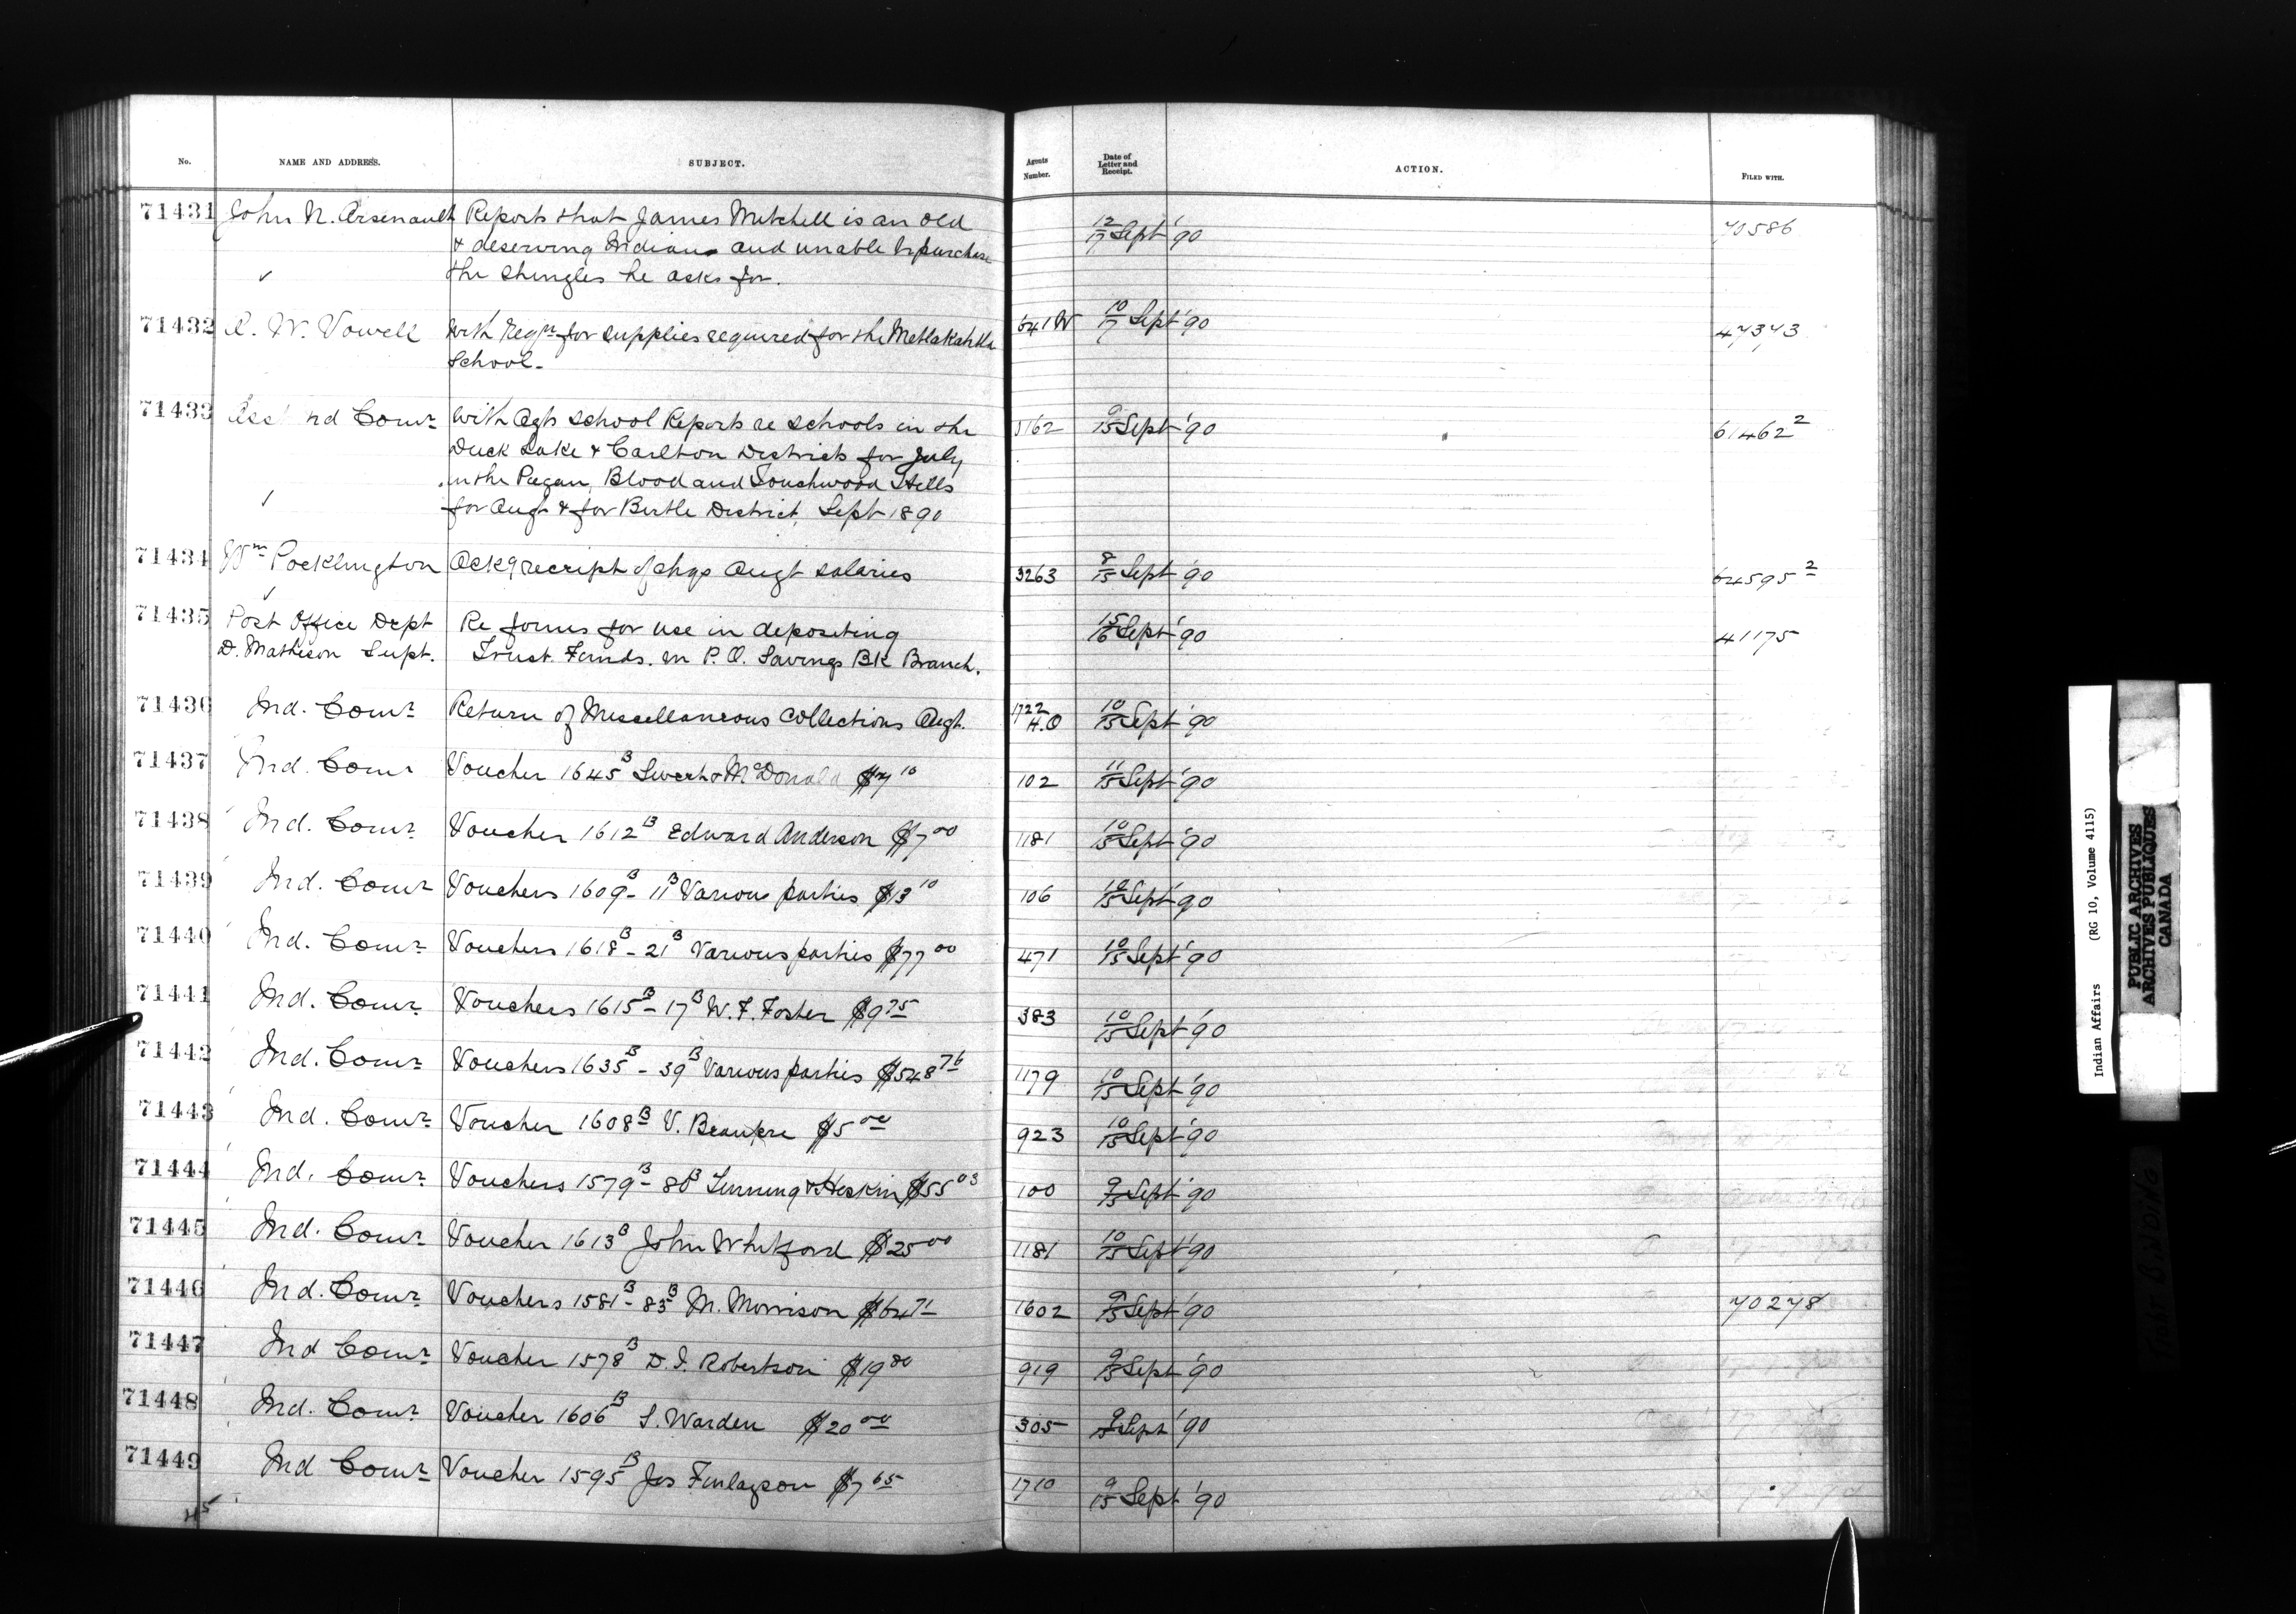 No. NAME AND ADDRESS. SUBJECT. Agents Number. Date of Letter and Receipt. ACTION. FILED WITH.
71431 John N. Arsenault Reports that James Mitchell is an old 12/17 Sept '90 70586
& deserving Indian and unable to purchase
the shingles he asks for.
71432 A. W. Vowell With Reqn for supplies required for the Metlakahtla 641 W 10/17 Sept '90 47373
School.
71433 Asst Ind Comr With Agts School Reports re Schools in the 5162 9/15 Sept '90 61462 2
Duck Lake & Carlton Districts for July
in the Piegan, Blood and Touchwood Hills
for Augt & for Birtle District, Sept 1890
71434 Wm Pocklington Ackg receipt of chqs Augt salaries 3263 8/15 Sept '90 64595 2
71435 Post Office Dept Re forms for use in depositing 15/16 Sept '90 41175
D. Matheson Supt. Trust Funds in P.O. Savings Bk Branch.
71436 Ind. Comr Return of Miscellaneous Collections Augt. 1722 H.O 10/15 Sept '90
71437 Ind. Comr Voucher 1645B McDonald 102 11/15 Sept '90
71438 Ind. Comr Voucher 1612B Edward Anderson $7 00 1181 10/15 Sept '90
71439 Ind. Comr Vouchers 1609B - 11B Various parties $13 10 106 10/15 Sept '90
71440 Ind. Comr Vouchers 1618B - 21B Various parties $77 00 471 10/15 Sept '90
71441 Ind. Comr Vouchers 1615B - 17B W. F. Foster $9 75 383 10/15 Sept '90
71442 Ind. Comr Vouchers 1635B - 39B Various parties $548 76 1179 10/15 Sept '90
71443 Ind. Comr Voucher 1608B V. Beaupre $5 00 923 10/15 Sept '90
71444 Ind. Comr Vouchers 1579B - 80B $55 03 100 9/15 Sept '90
71445 Ind. Comr Voucher 1613B John Whitford $25 00 1181 10/15 Sept '90
71446 Ind. Comr Vouchers 1581B - 83B M. Morrison 1602 9/15 Sept '90 70278
71447 Ind Comr Voucher 1578B D. I. Robertson $19 80 919 9/15 Sept '90
71448 Ind. Comr Voucher 1606B S. Warden $20 00 305 9/15 Sept '90
71449 Ind Comr Voucher 1595B Jos Finlayson $7 65 1710 9/15 Sept '90
Indian Affairs (RG 10, Volume 4115)
PUBLIC ARCHIVES
ARCHIVES PUBLIQUES
CANADA